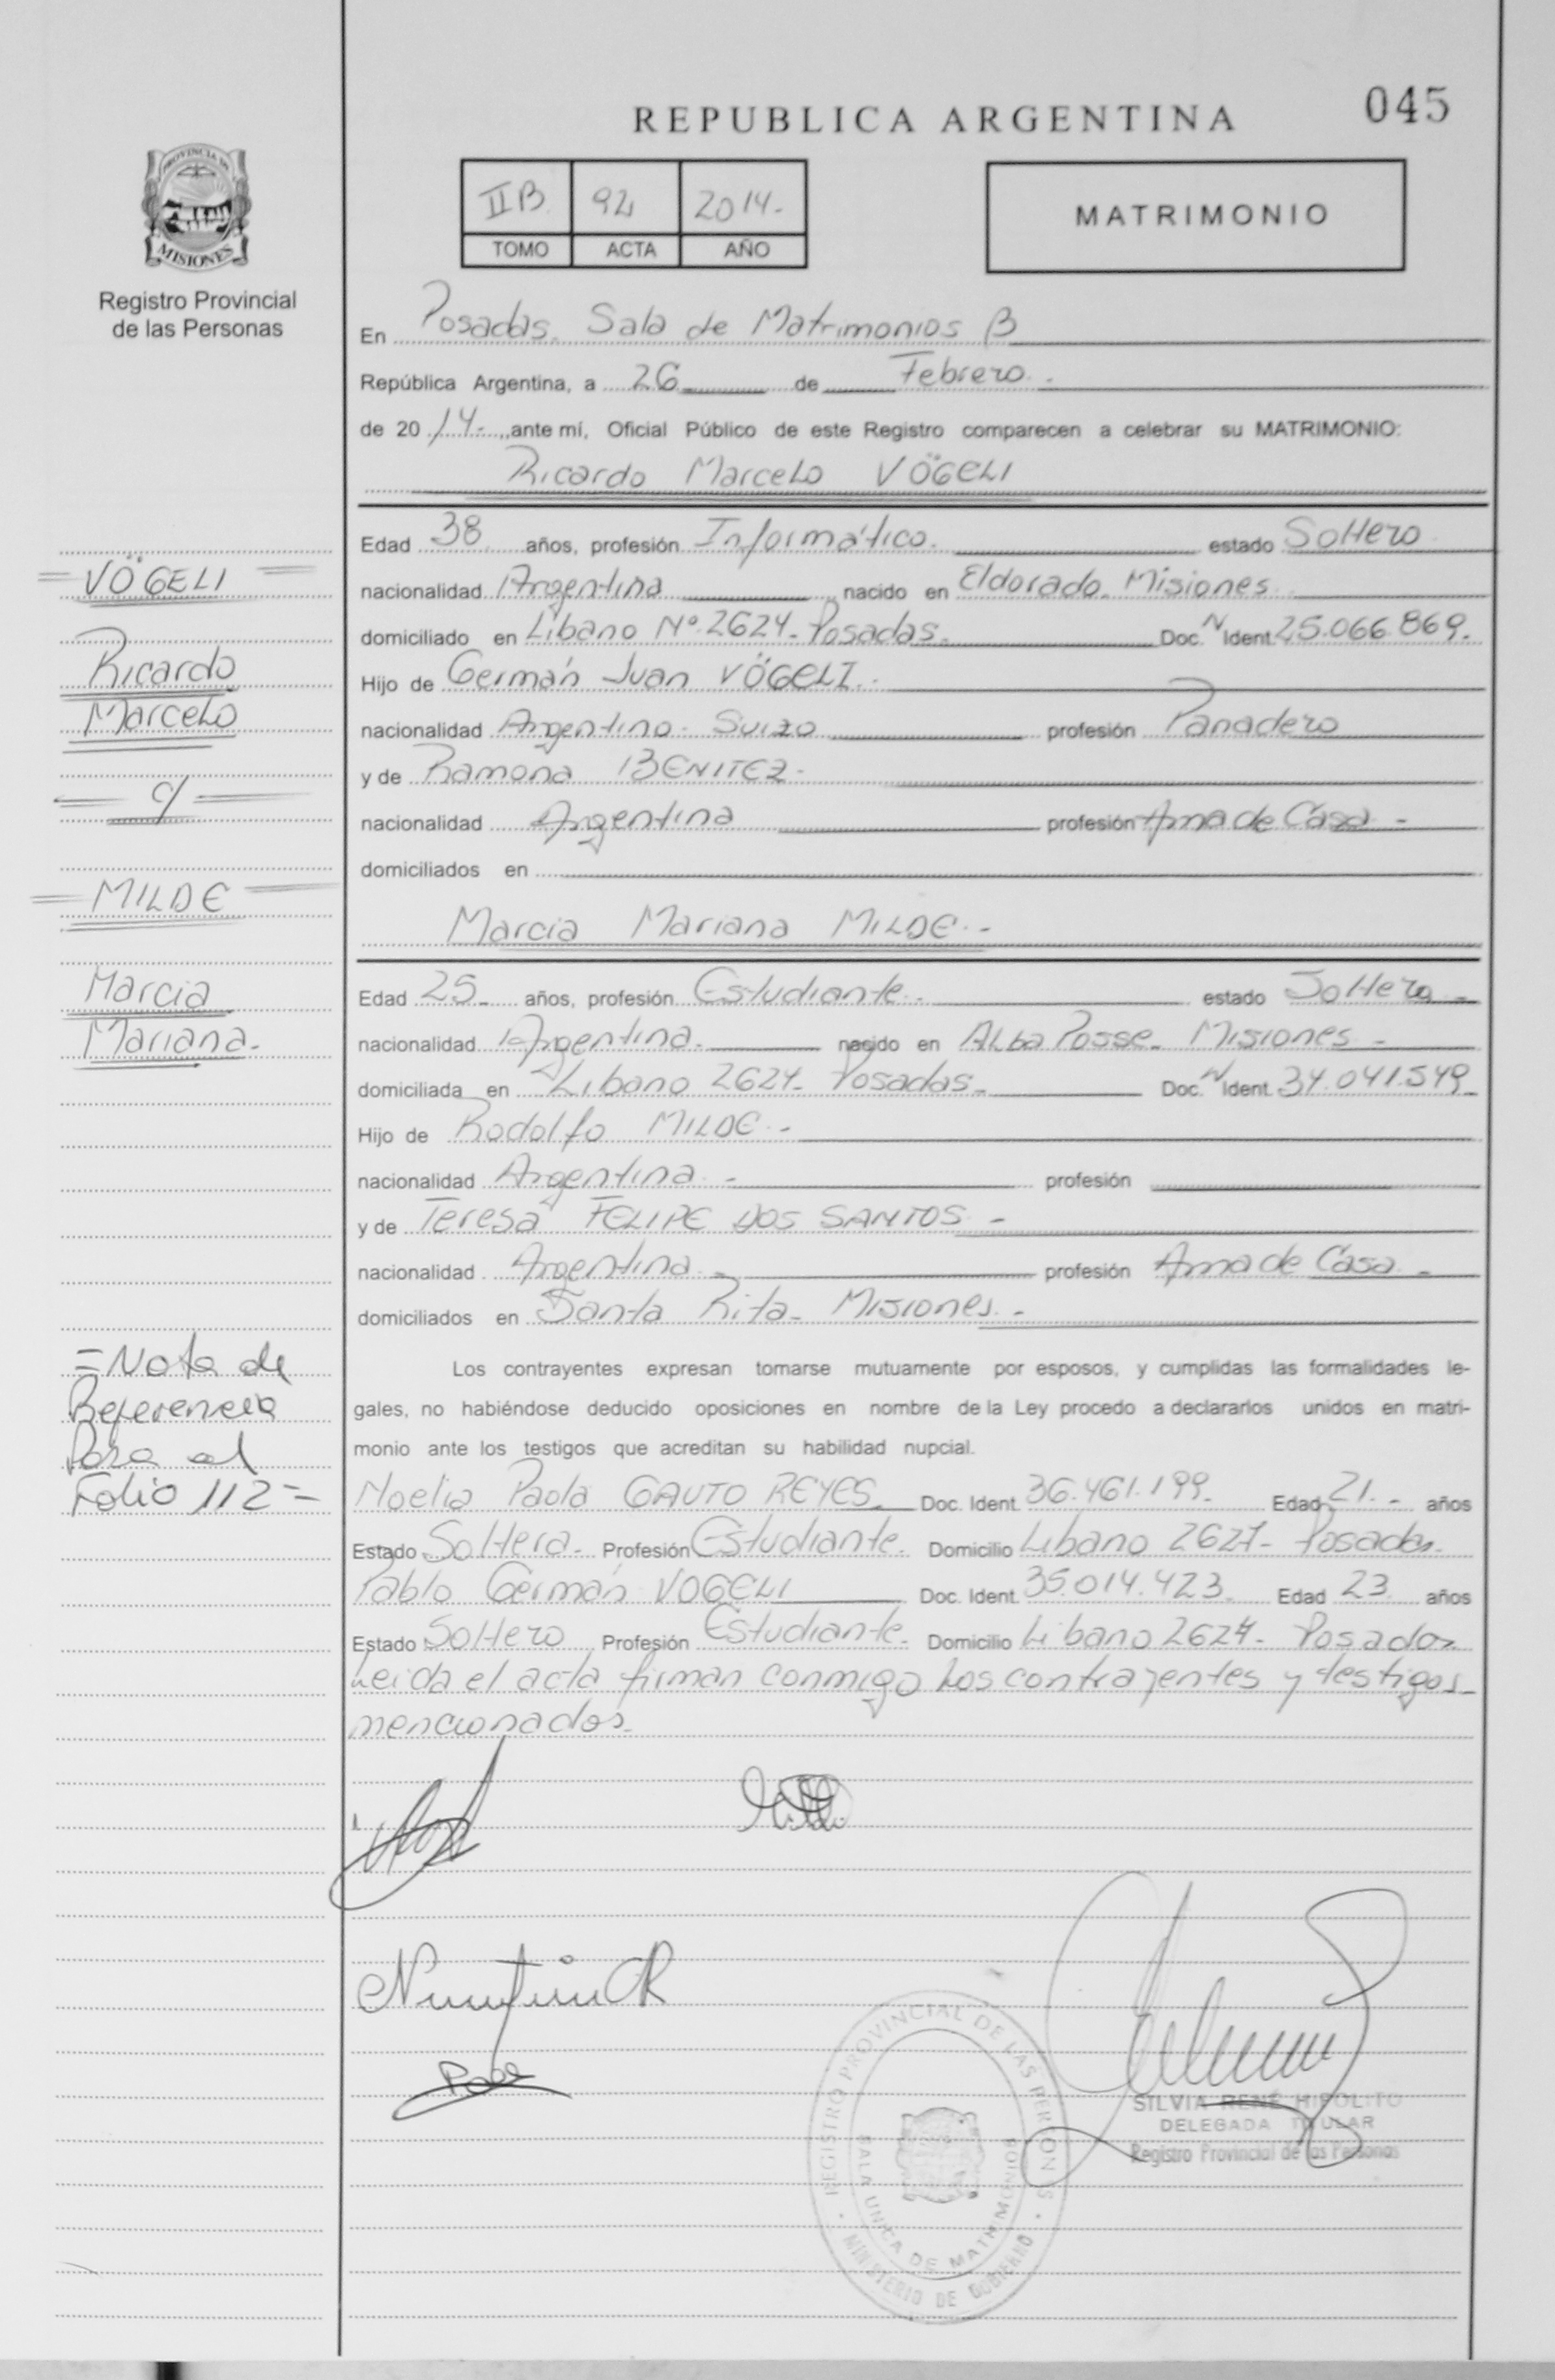 REPUBLICA ARGENTINA
045
PROVINCIA DE
MISIONES
Registro Provincial
de las Personas
IIB. 94 2014.-
TOMO ACTA AÑO
MATRIMONIO
En Posadas. Sala de Matrimonios B
República Argentina, a 26 de Febrero.-
de 20 14.- ante mí, Oficial Público de este Registro comparecen a celebrar su MATRIMONIO:
Ricardo Marcelo VÖGELI
Edad 38 años, profesión Informático. estado Soltero
nacionalidad Argentina nacido en Eldorado. Misiones
domiciliado en Líbano Nº 2624- Posadas. Doc. N Ident. 25.066.869.
Hijo de Germán Juan VÖGELI.-
nacionalidad Argentino- Suizo profesión Panadero
y de Ramona BENITEZ-
nacionalidad Argentina profesión Ama de Casa -
domiciliados en
Marcia Mariana MILDE.-
Edad 25- años, profesión Estudiante.- estado Soltera -
nacionalidad Argentina.- nacido en Alba Posse- Misiones -
domiciliada en Líbano 2624- Posadas- Doc. N Ident. 34.041.549-
Hijo de Rodolfo MILDE.-
nacionalidad Argentina.- profesión
y de Teresa FELIPE DOS SANTOS -
nacionalidad Argentina - profesión Ama de Casa -
domiciliados en Santa Rita- Misiones.-
Los contrayentes expresan tomarse mutuamente por esposos, y cumplidas las formalidades le-
gales, no habiéndose deducido oposiciones en nombre de la Ley procedo a declararlos unidos en matri-
monio ante los testigos que acreditan su habilidad nupcial.
Noelia Paola GAUTO REYES- Doc. Ident. 36.461.199- Edad 21.- años
Estado Soltera- Profesión Estudiante. Domicilio Libano 2624- Posadas-
Pablo Germán VOGELI Doc. Ident. 35.014.423- Edad 23 años
Estado Soltero Profesión Estudiante- Domicilio Libano 2624- Posadas
Leida el acta firman conmigo los contrayentes y testigos-
mencionados-
VÖGELI
Ricardo
Marcelo
c/
MILDE
Marcia
Mariana-
=Nota de
Referencia
Para el
Folio 112=
REGISTRO PROVINCIAL DE LAS PERSONAS
SALA UNICA DE MATRIMONIOS
MINISTERIO DE GOBIERNO
SILVIA RENÉ HIPOLITO
DELEGADA TITULAR
Registro Provincial de las Personas